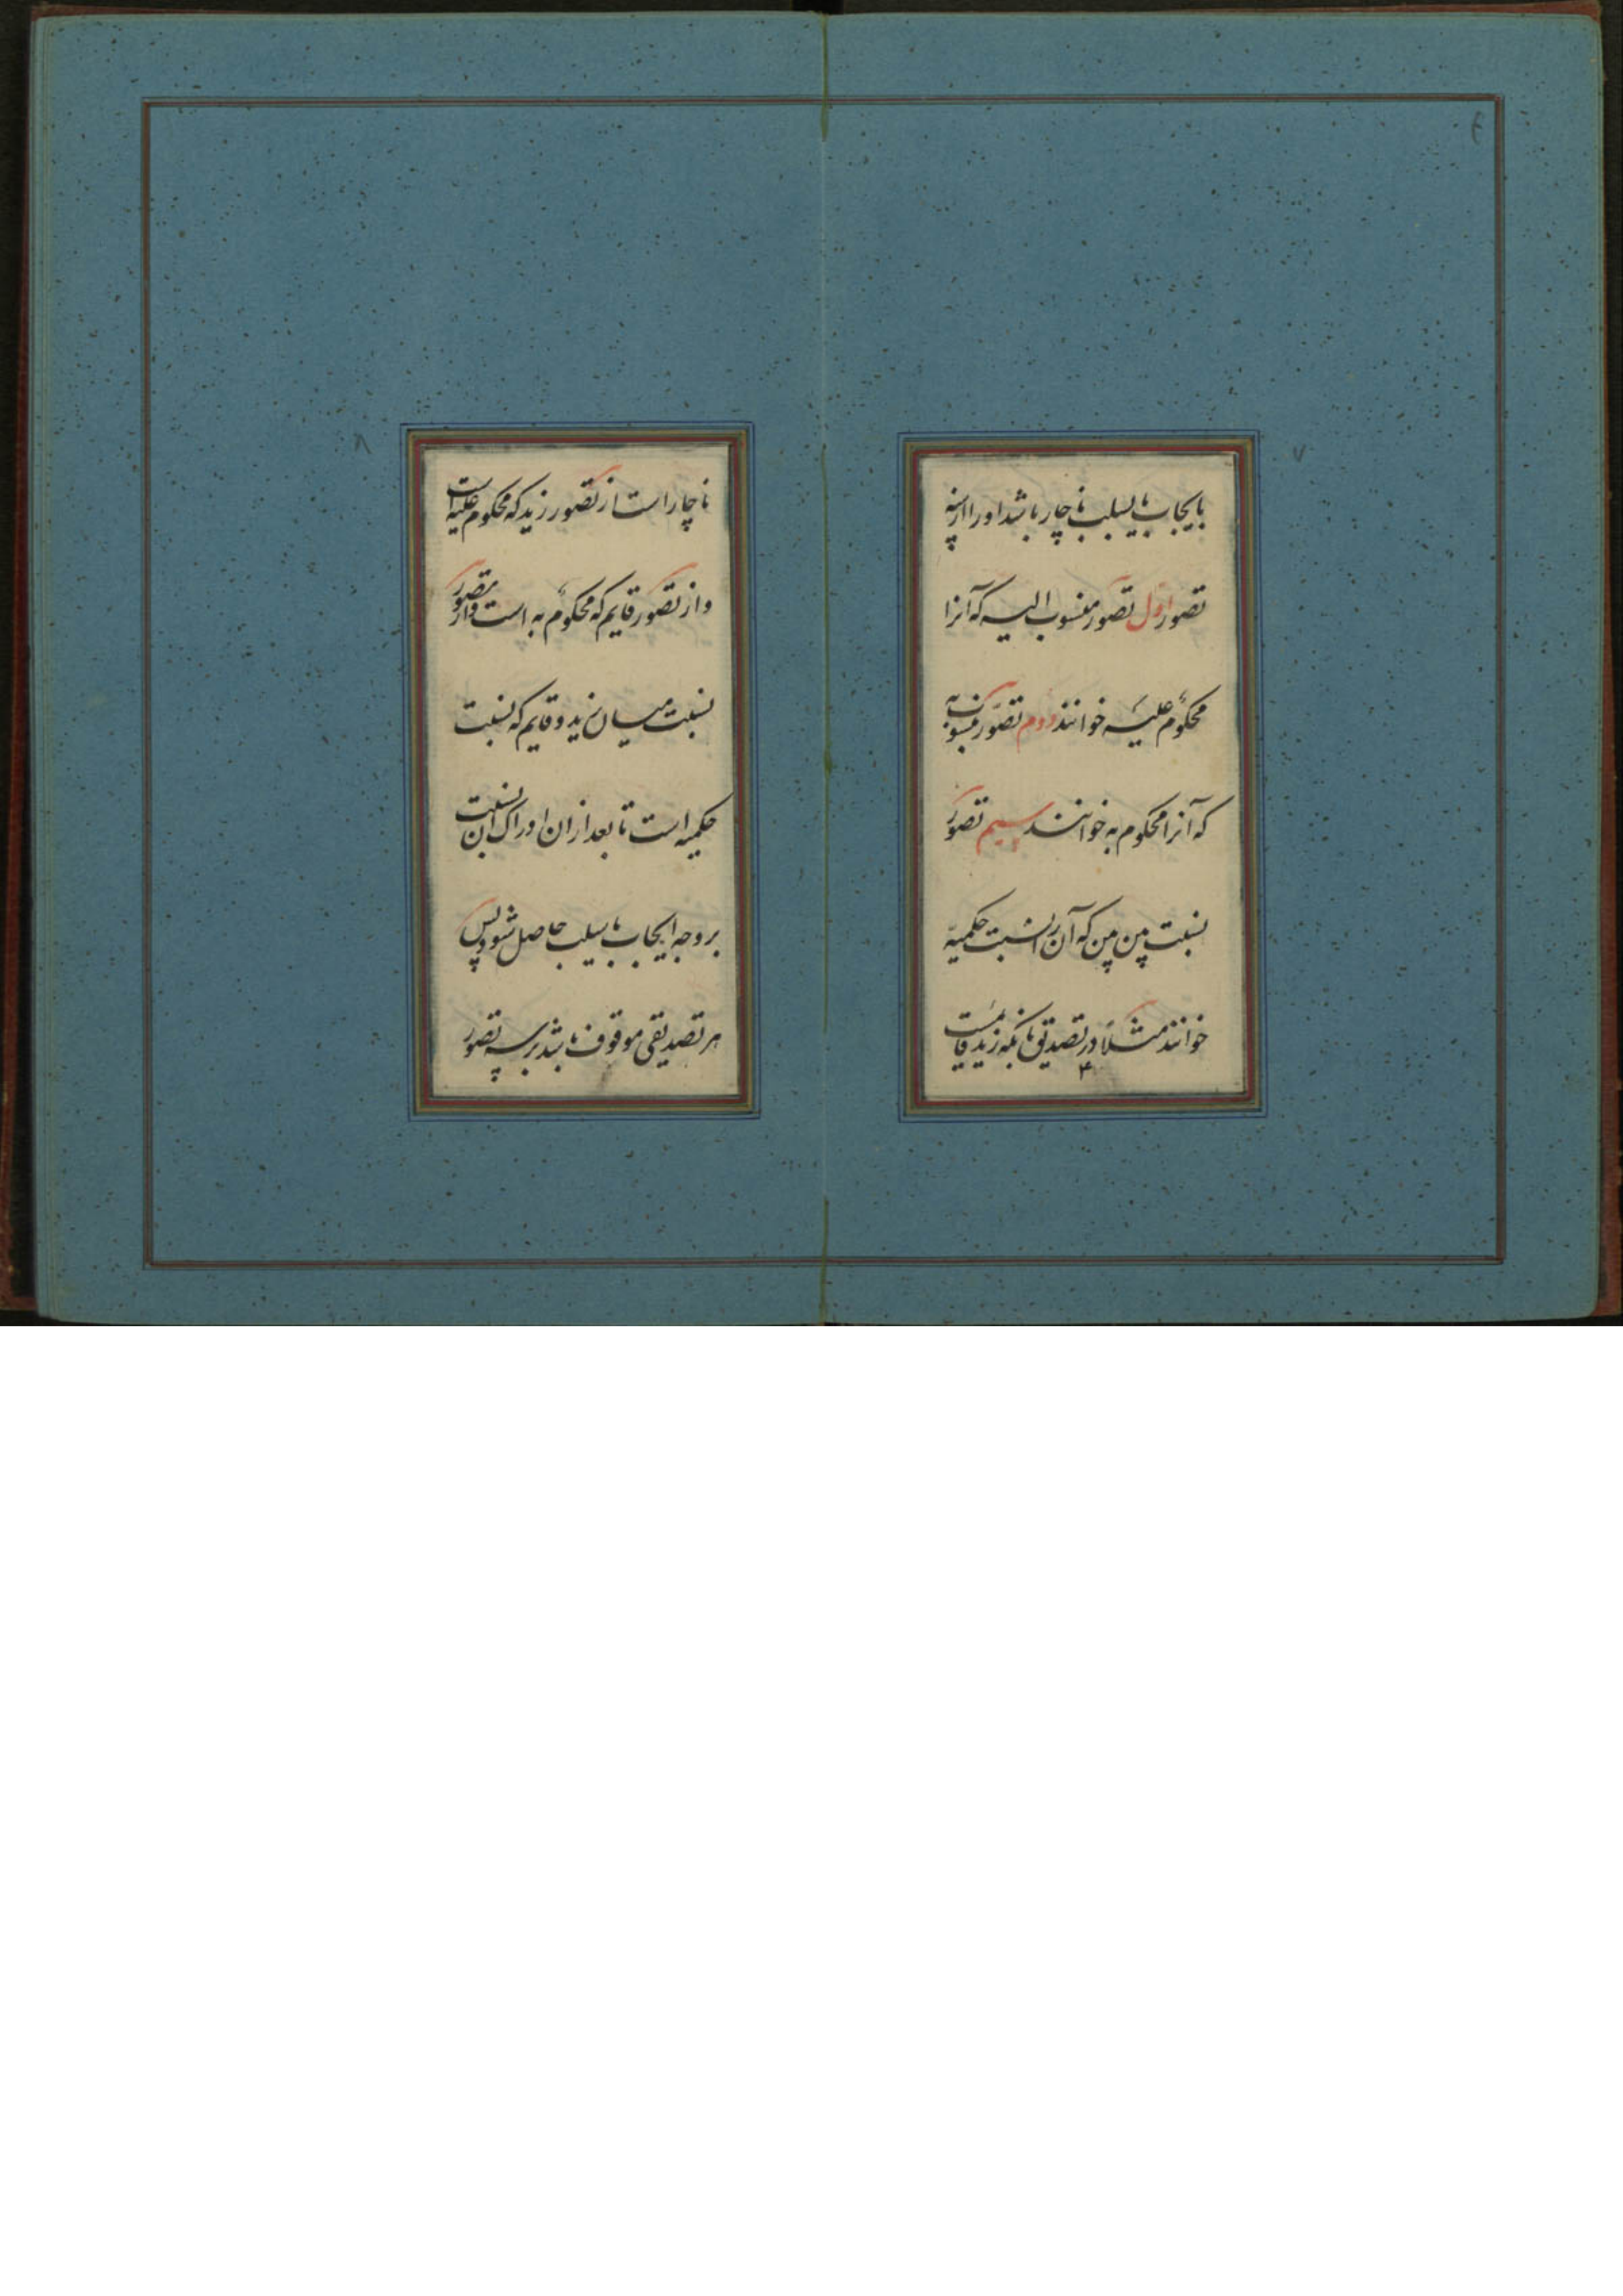 بایجاب یا بسلب ناچار باشد او را از سه
تصور اول تصور منسوب الیه که آنرا
محکوم علیه خوانند دوم تصور منسوب به
که آنرا محکوم به خوانند سیم تصور
نسبت بین بین که آن را نسبت حکمیه
خوانند مثلا در تصدیق بانکه زید قایمست
ناچار است از تصور زید که محکوم علیه است
و از تصور قایم که محکوم به است و از تصور
نسبت میان زید و قایم که نسبت
حکمیه است تا بعد از ان ادراک ان نسبت
بر وجه ایجاب یا سلب حاصل شود پس
هر تصدیقی موقوف باشد بر سه تصور